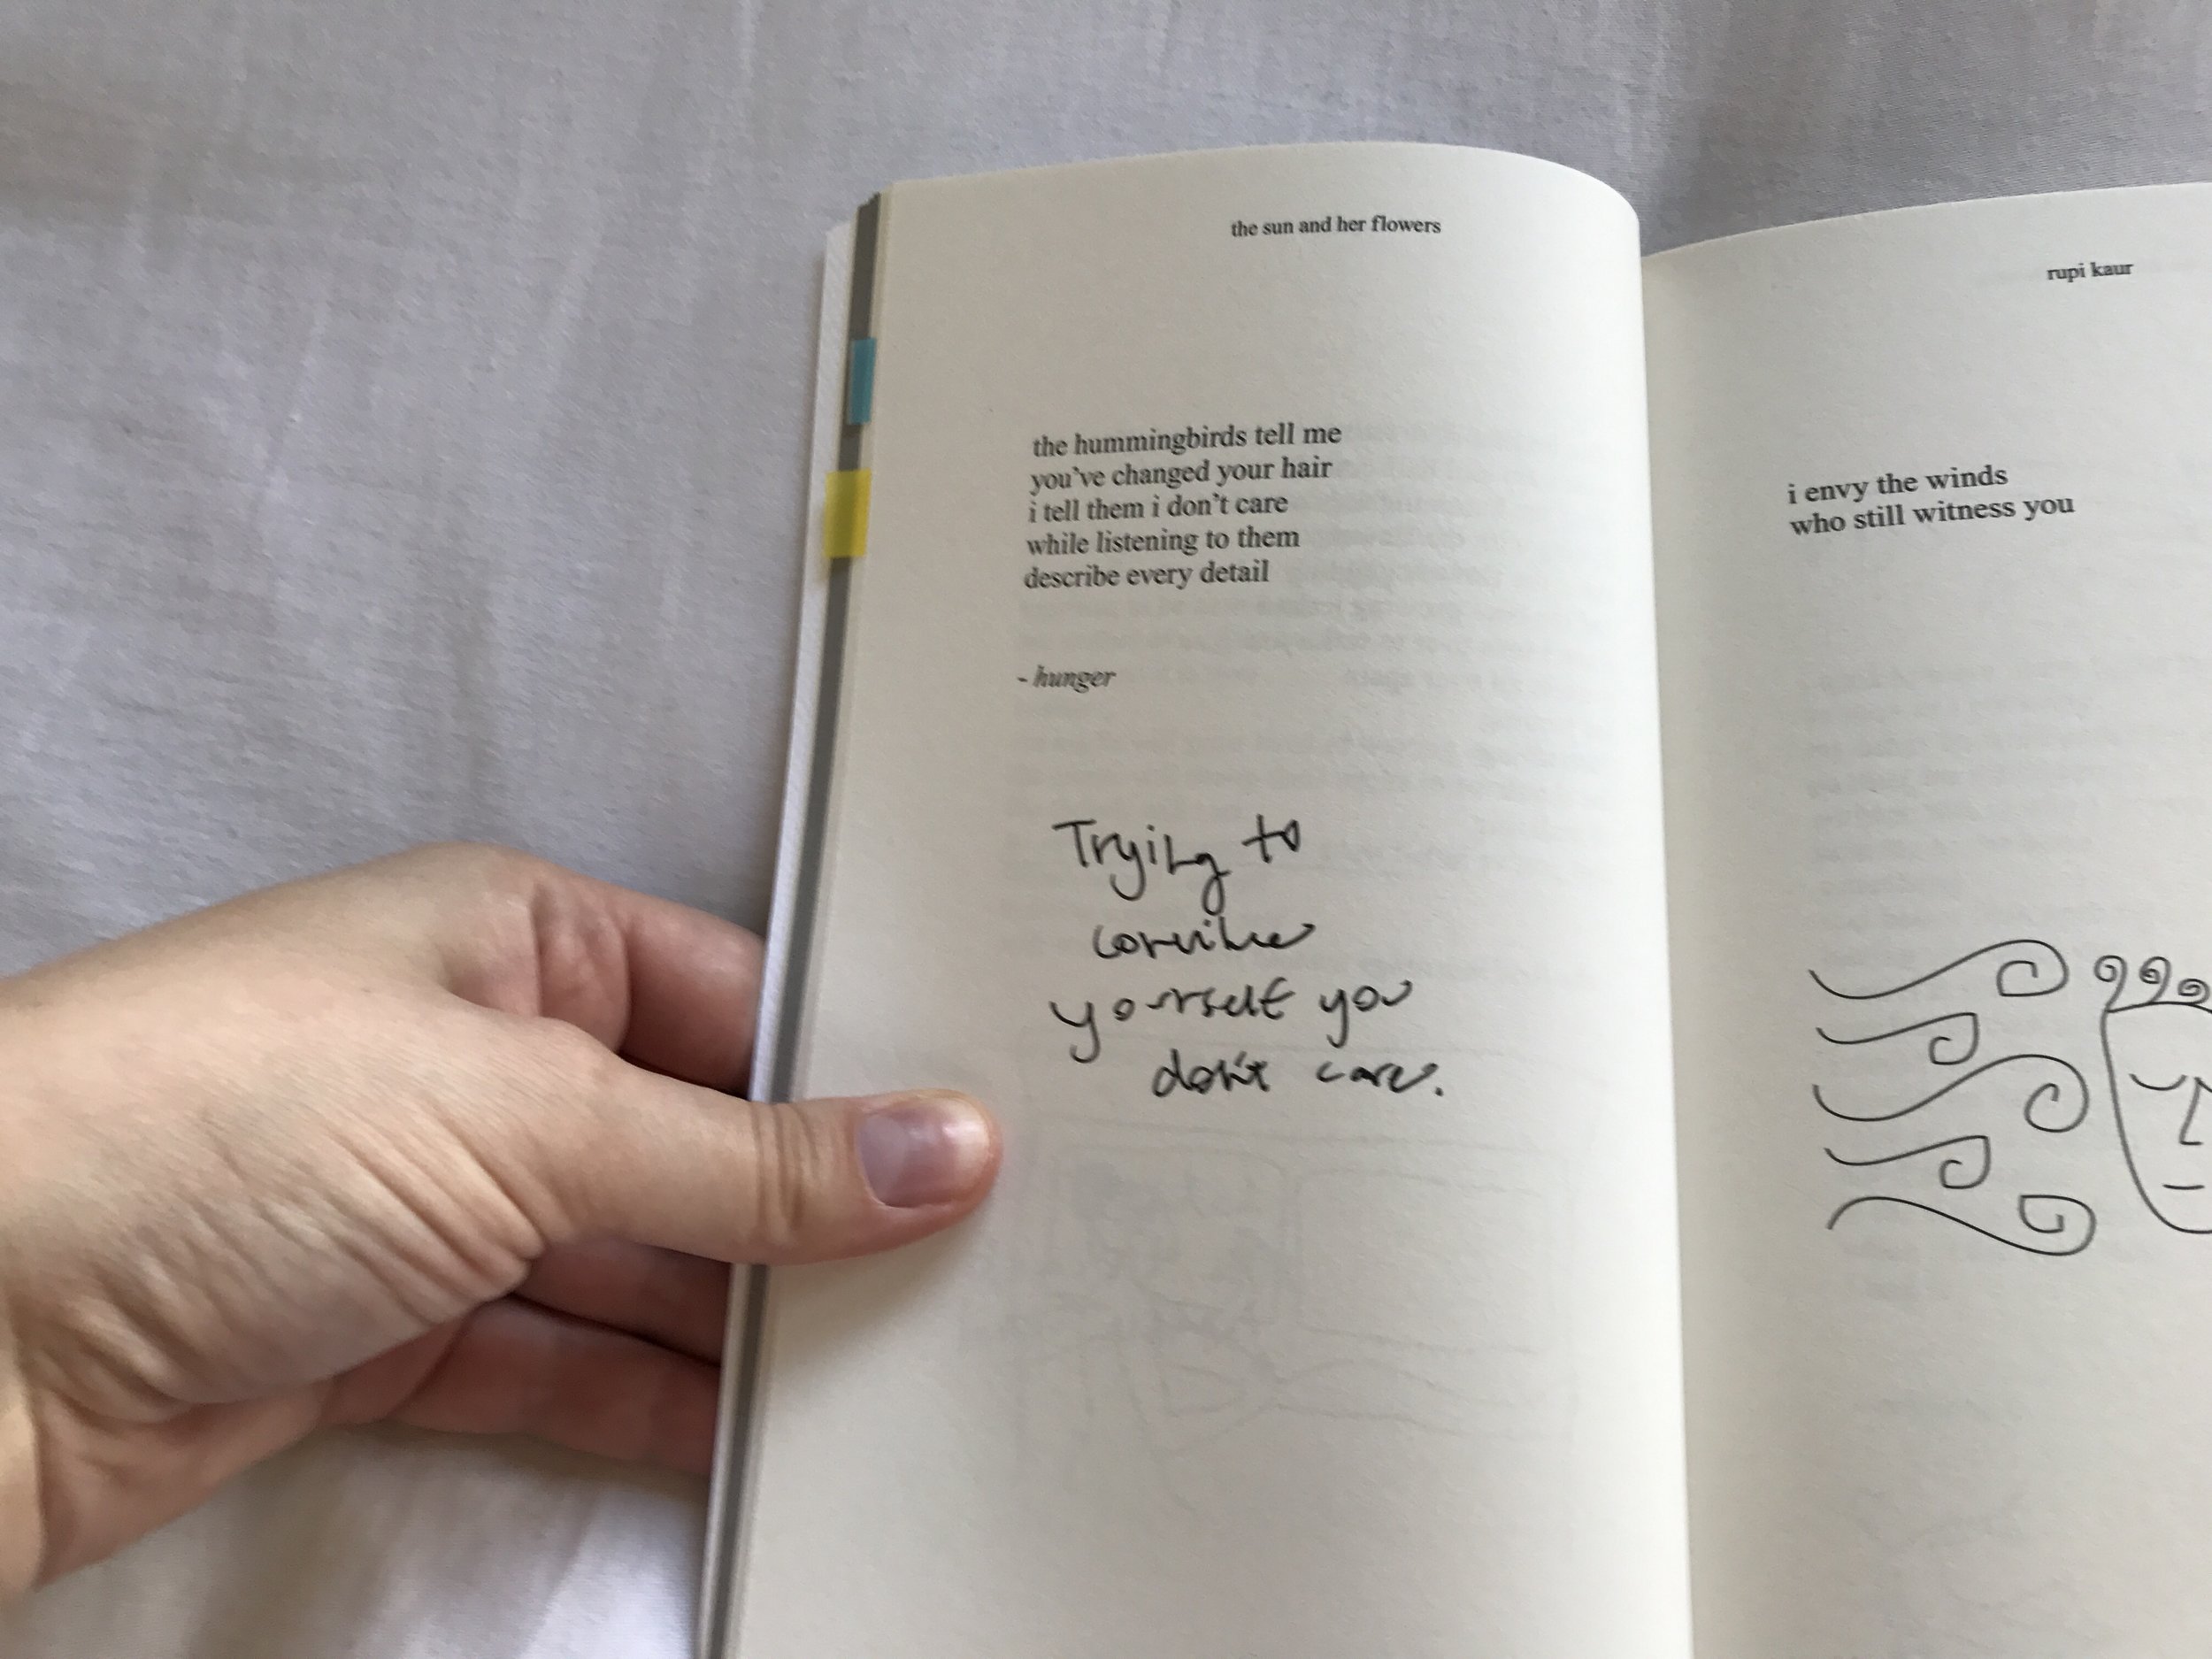 the sun and her flowers
the hummingbirds tell me
you've changed your hair
i tell them i don't care
while listening to them
describe every detail
- hunger
Trying to
convince
yourself you
don't care.
rupi kaur
i envy the winds
who still witness you